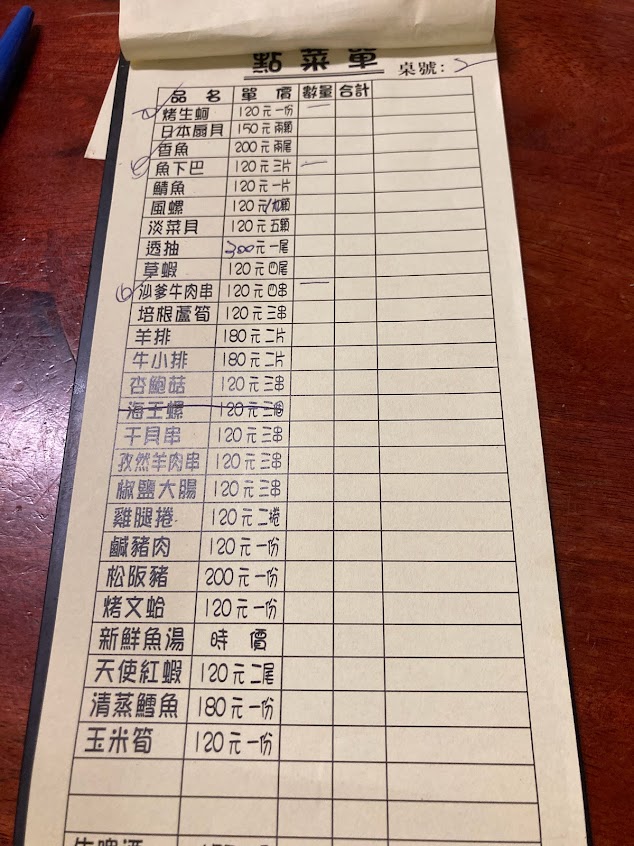 點菜單 桌號:2
品名 單價 數量 合計
烤生蚵 120元一份 一
日本扇貝 150元兩顆
香魚 200元兩尾
魚下巴 120元三片 一
鯖魚 120元一片
風螺 120元/九顆
淡菜貝 120元五顆
透抽 300元一尾
草蝦 120元四尾
沙爹牛肉串 120元四串 一
培根蘆筍 120元三串
羊排 180元二片
牛小排 180元二片
杏鮑菇 120元三串
海王螺 120元三個
干貝串 120元三串
孜然羊肉串 120元三串
椒鹽大腸 120元三串
雞腿捲 120元二捲
鹹豬肉 120元一份
松阪豬 200元一份
烤文蛤 120元一份
新鮮魚湯 時價
天使紅蝦 120元二尾
清蒸鱈魚 180元一份
玉米筍 120元一份